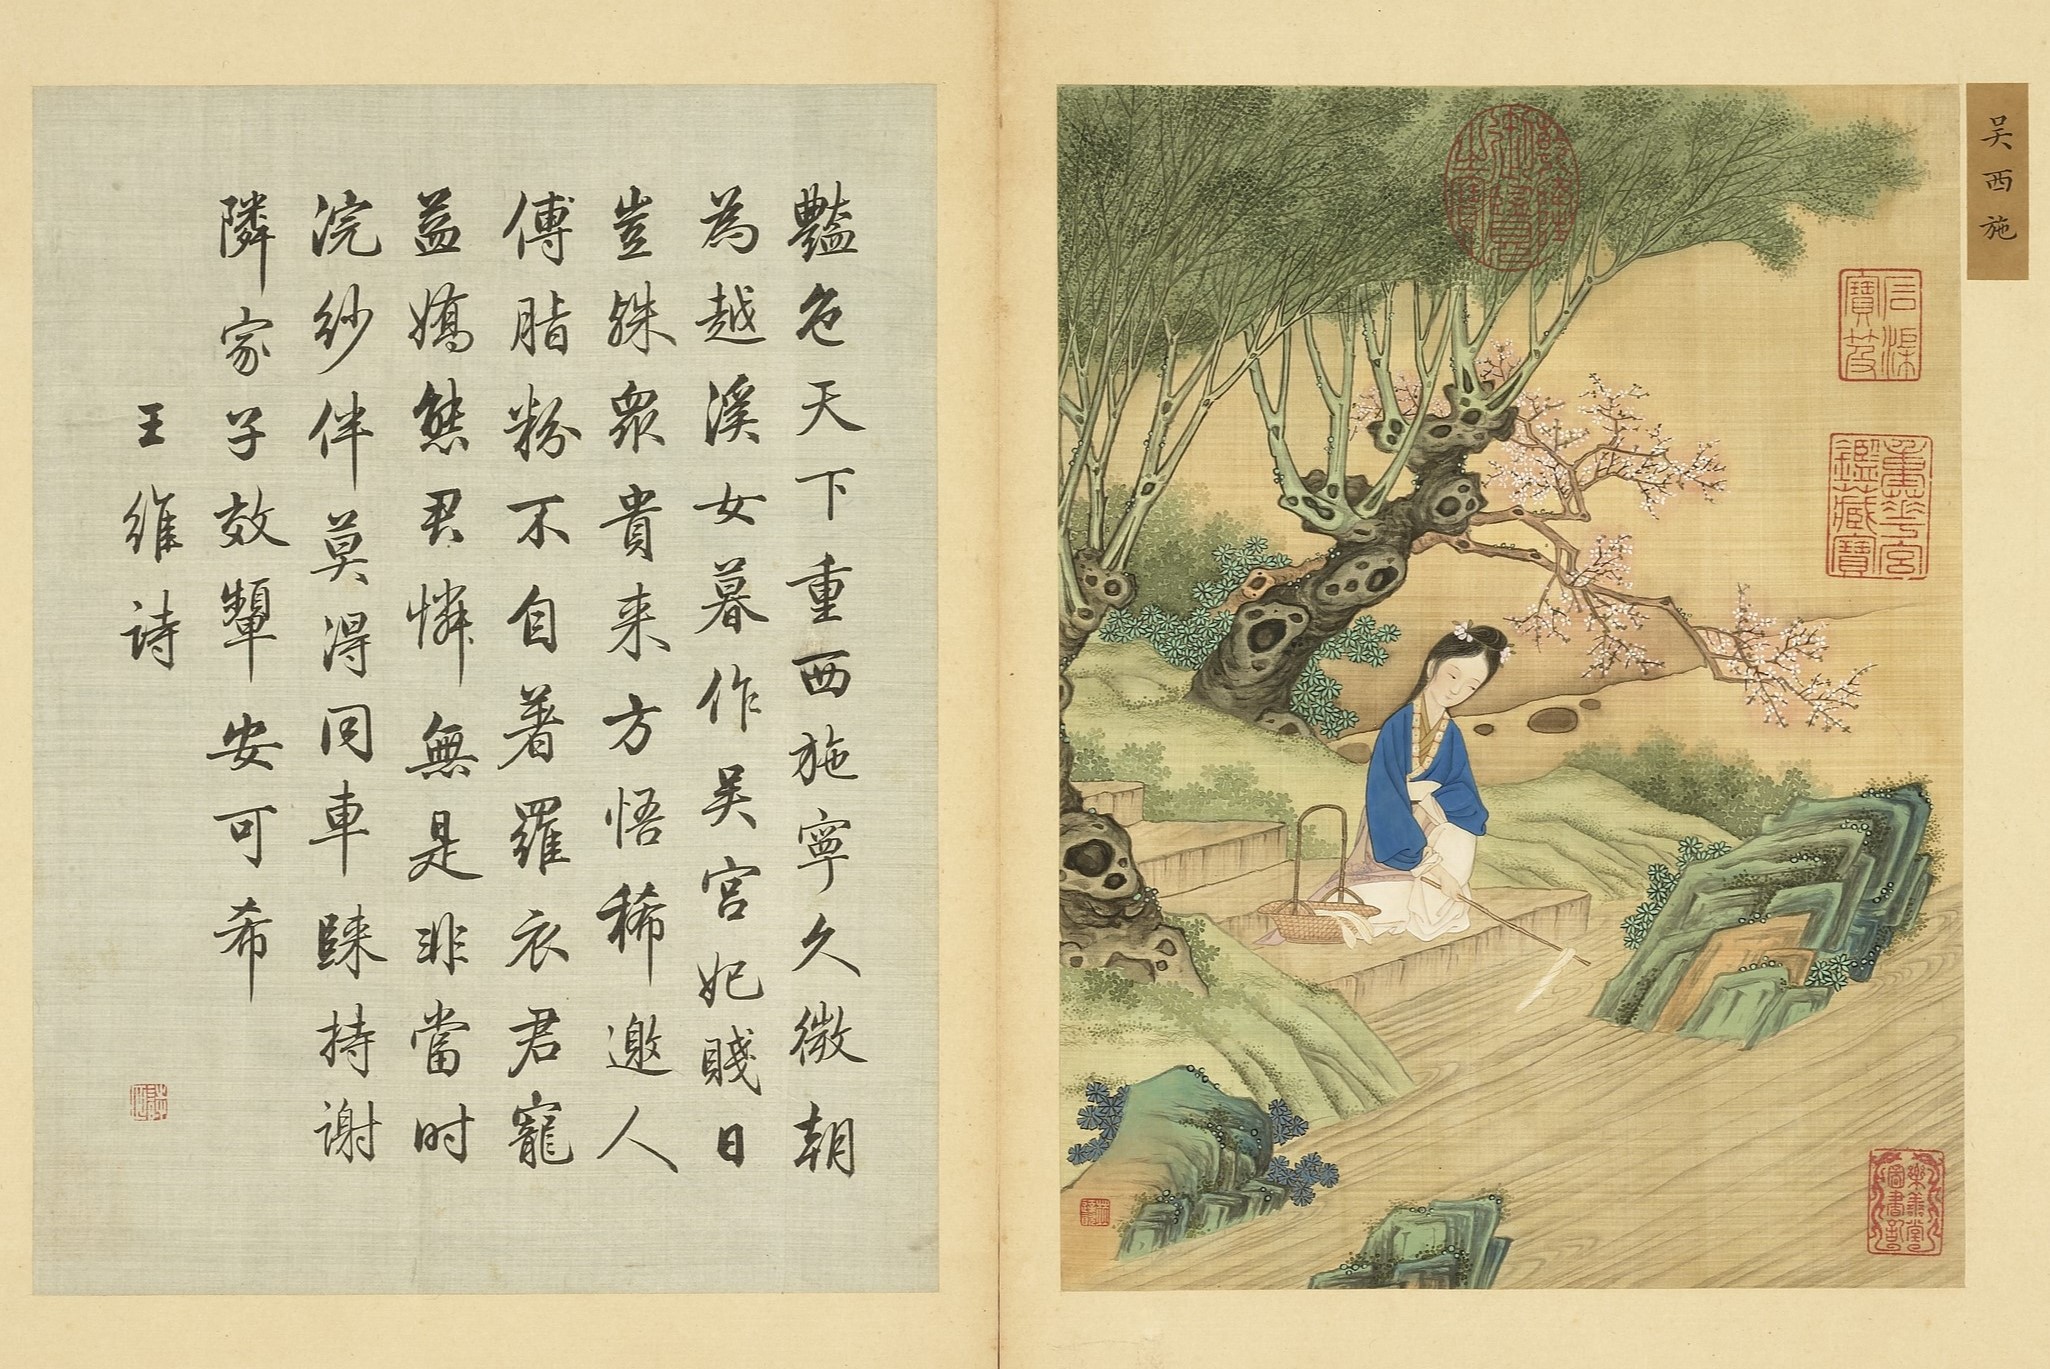 吴西施
乾隆御覽之寶
石渠寶笈
重華宮鑑藏寶
樂善堂圖書記
豔色天下重西施寧久微朝
為越溪女暮作吴宫妃賤日
豈殊衆貴来方悟稀邀人
傅脂粉不自著羅衣君寵
益嬌態君憐無是非當时
浣紗伴莫得同車歸持謝
隣家子效顰安可希
王維詩